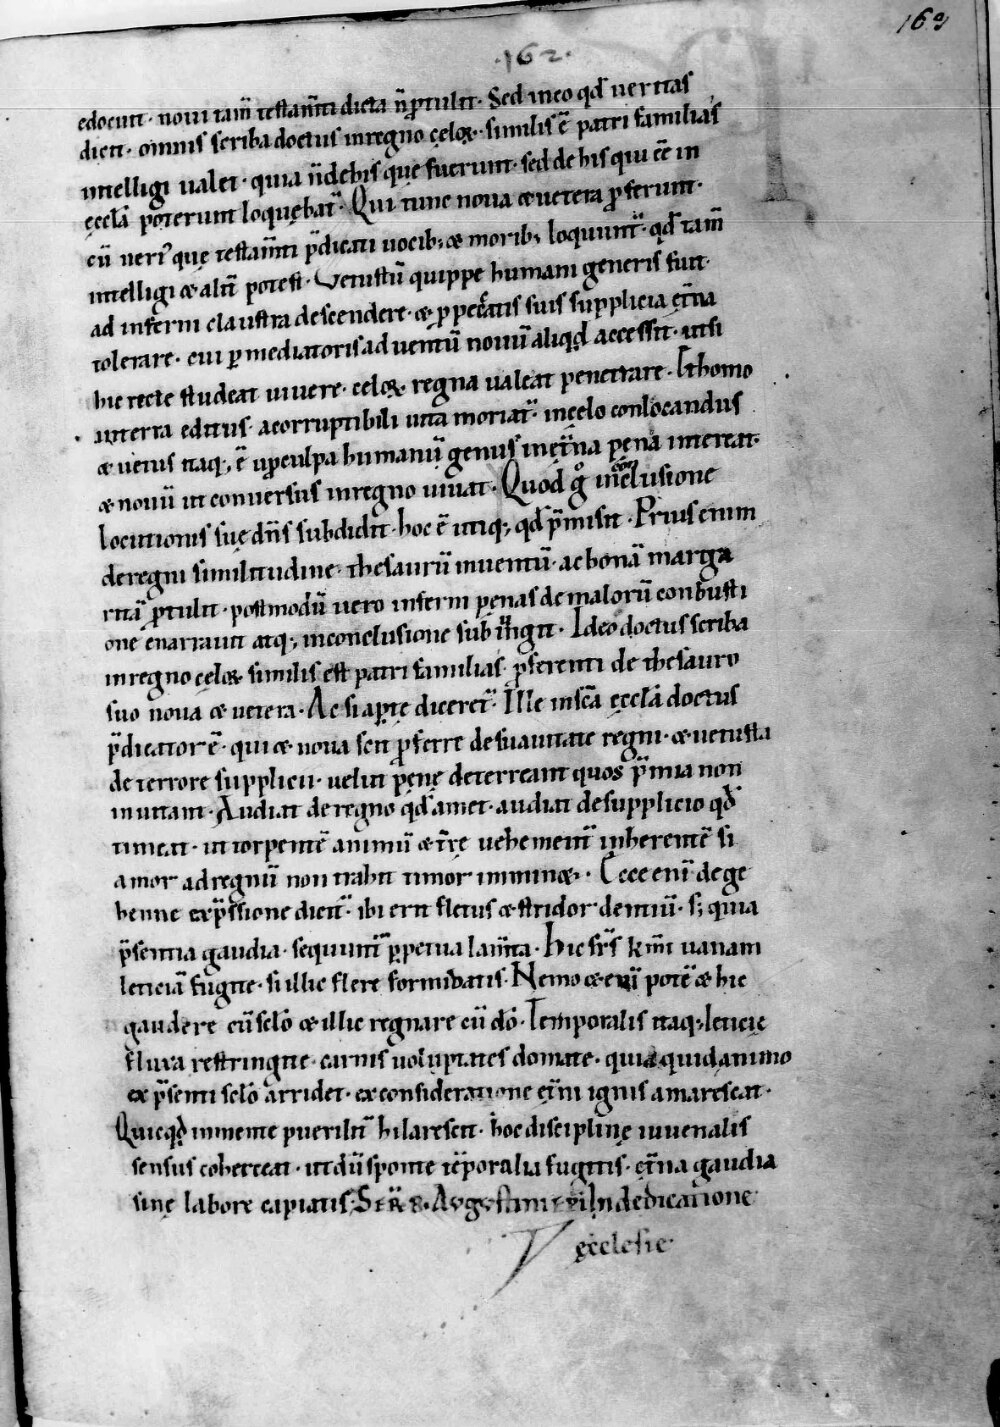 163
·162·
edocuit· noui tam̄ testam̄ti dicta n̄ ꝓtulit· Sed in eo qđ ueritas
dicit· omnis scriba doctus in regno cęloꝝ· similis ē patri familias
intelligi ualet· quia n̄ de his que fuerunt· sed de his qui eē in
ęccl̄a poterunt loquębat̄· Qui tunc noua & uetera ꝓferunt·
cū ueri'que testam̄ti p̄dicati uocib; & morib; loquunt̄· qđ tam̄
intelligi & alit̄ potest· Vetustū quippe humani generis fuit·
ad inferni claustra descendere· & ꝓ peccatis suis supplicia et̄na
tolerare· cui ꝑ mediatoris aduentū nouū aliqđ accessit· ut si
hic recte studeat uiuere· celoꝝ regna ualeat penetrare· Et homo
in terra editus· a corruptibili uita moriat̄· in cęlo conlocandus
& uetus itaq; ē ut ꝓ culpa humanū genus in et̄na pęna intereat·
& nouū ut conuersus in regno uiuat· Quod g̊ in conclusione
locutionis suę dn̄s subdidit· hoc ē utiq; qđ p̄misit· Prius enim
de regni similitudine· thesaurū inuentū· ac bonā marga
ritā ꝓtulit· postmodū uero inferni pęnas de malorū conbusti
one enarrauit atq; in conclusione subiungit· Ideo doctus scriba
in regno cęloꝝ similis est patri familias· ꝓferenti de thesauro
suo noua & uetera· Ac si aperte diceret̄· Ille in sc̄a ęccl̄a doctus
p̄dicator ē· qui & noua scit ꝓferre de suauitate regni· & uetusta
de terrore supplicii· uelut pęnę deterreant quos p̄mia non
inuitant· Audiat de regno qđ amet· audiat de supplicio qđ
timeat· ut torpentē animū & t̄rę uehement̄ inherentē si
amor ad regnū non trahit timor minu&· Ecce enī de ge
henne exp̄ssione dicit̄· ibi erit fletus & stridor dentiū· s; quia
p̄sentia gaudia· sequunt̄ ꝑpetua lam̄ta· hic fr̄s k̄mi uanam
leticiā fugite· si illic flere formidatis· Nemo & enī potē & hic
gaudere cū sclō & illic regnare cū dō· Temporalis itaq; leticię
fluxa restringite· carnis uoluptates domate· quia quid animo
ex p̄senti sclō arridet· ex consideratione et̄ni ignis amarescat·
Quicqđ in mente puerilit̄ hilarescit· hoc disciplinę iuuenalis
sensus coherceat· ut dū sponte tēporalia fugitis· et̄na gaudia
sine labore capiatis· in dedicatione
ęcclesie·